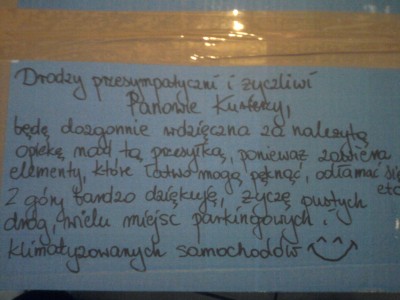 Drodzy przesympatyczni i życzliwi
Panowie Kurierzy,
będę dozgonnie wdzięczna za należytą
opiekę nad tą przesyłką, ponieważ zawiera
elementy, które łatwo mogą pęknąć, odłamać się
etc.
Z góry bardzo dziękuję, życzę pustych
dróg, wielu miejsc parkingowych i
klimatyzowanych samochodów